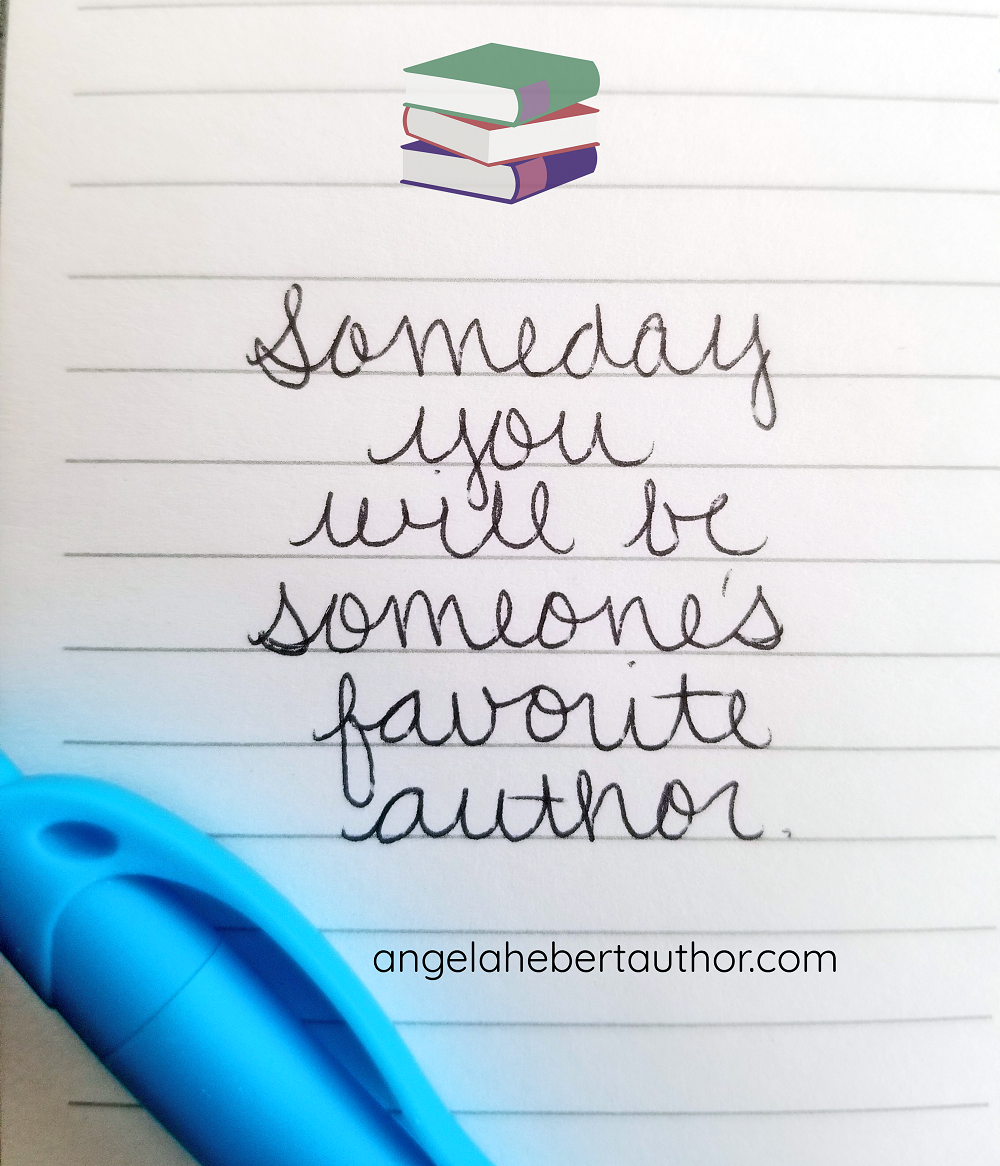 Someday
you
will be
someone's
favorite
author.
angelahebertauthor.com